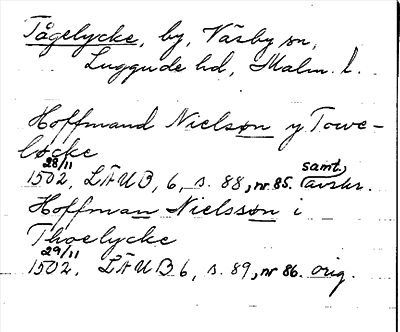 Tågelycke, by, Väsby sn,
Luggude hd, Malm. l.
Hoffmand Nielsøn y Towe-
løcke
28/11 samt.
1502. LÄUB, 6, s. 88, nr 85. avskr.
Hoffman Nielsson i
Thoelycke
29/11
1502. LÄUB 6, s. 89, nr 86. orig.